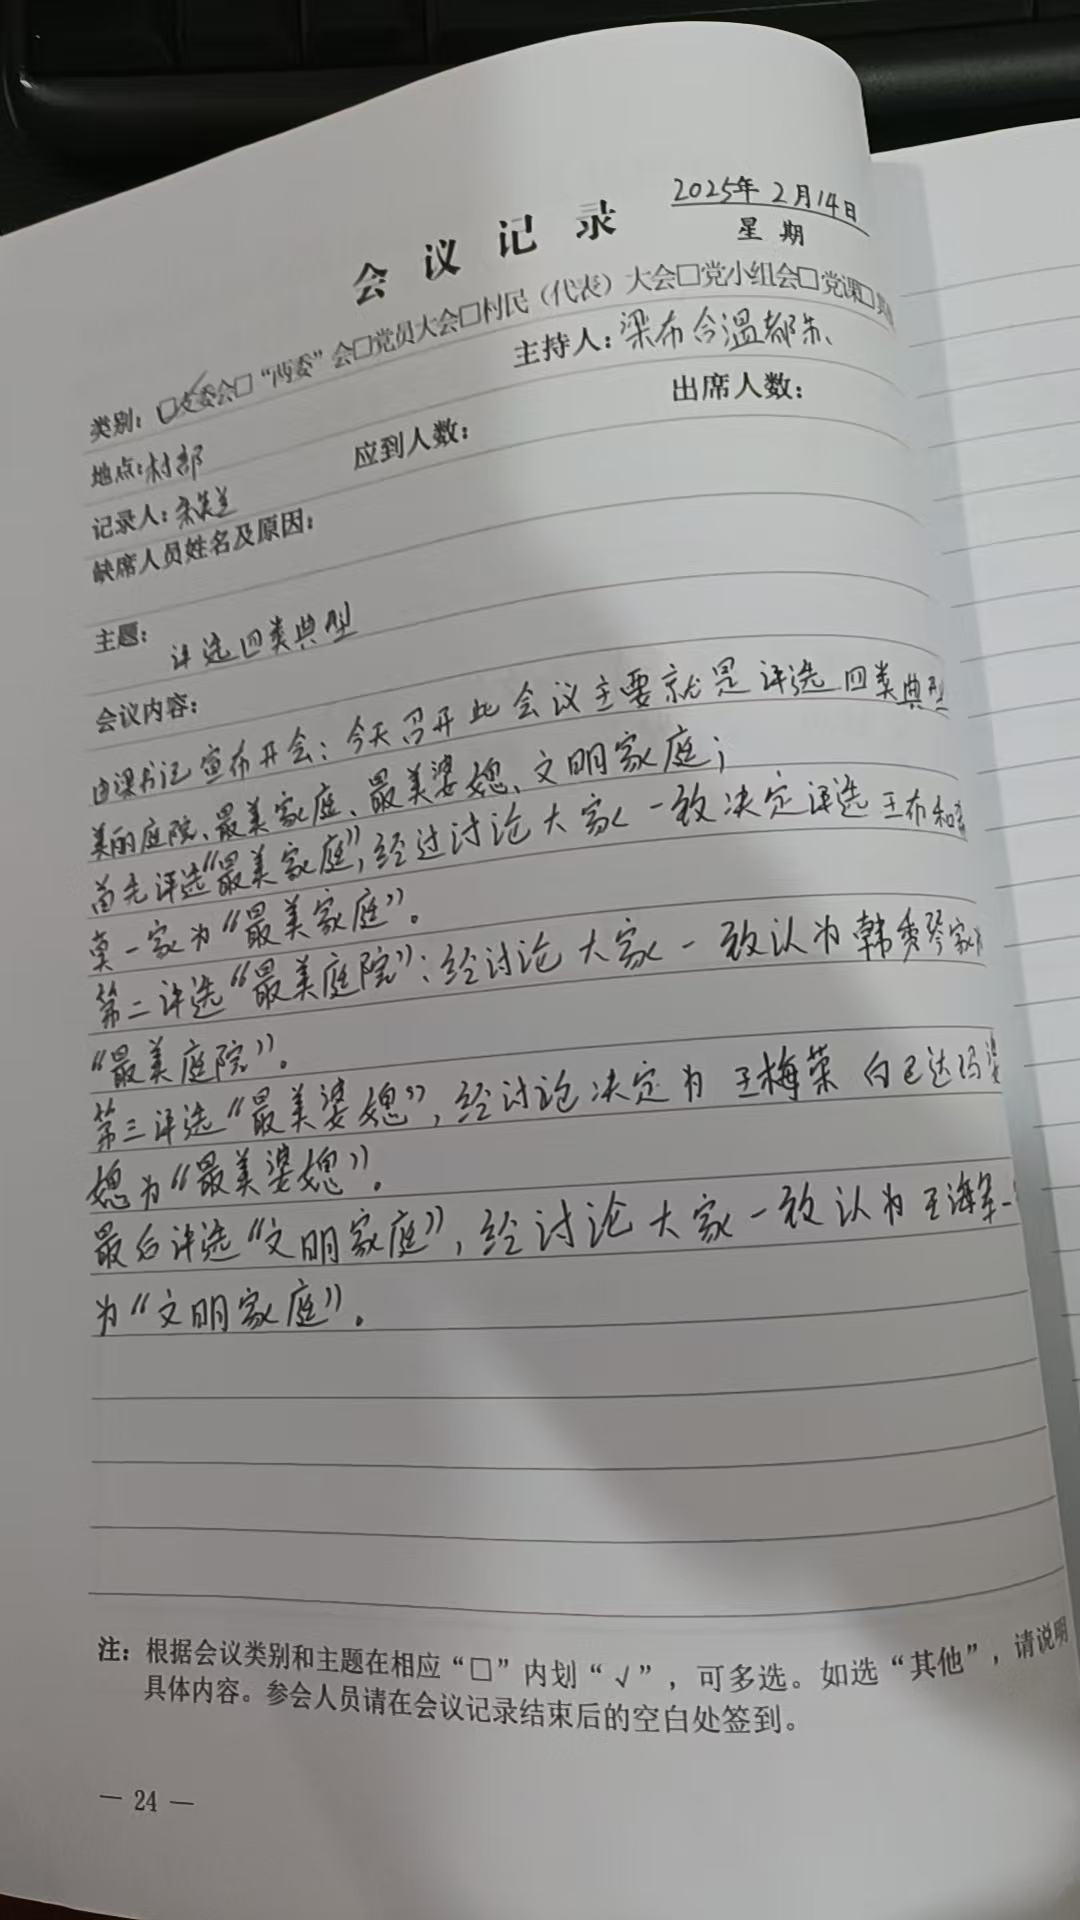 2025年2月14日
会议记录
星期
类别：□支委会□“两委”会□党员大会□村民（代表）大会□党小组会□党课□其
主持人：梁布合温都苏
地点：村部
应到人数：
出席人数：
记录人：
缺席人员姓名及原因：
主题：
评选四类典型
会议内容：
由梁书记宣布开会：今天召开此会议主要就是评选四类典型
美丽庭院、最美家庭、最美婆媳、文明家庭；
首先评选“最美家庭”，经过讨论大家一致决定评选王布和
莫一家为“最美家庭”。
第二评选“最美庭院”：经讨论大家一致认为韩秀琴家为
“最美庭院”。
第三评选“最美婆媳”，经讨论决定为王梅荣 白巴达玛婆
媳为“最美婆媳”。
最后评选“文明家庭”，经讨论大家一致认为王海军一
为“文明家庭”。
注：根据会议类别和主题在相应“□”内划“√”，可多选。如选“其他”，请说明
具体内容。参会人员请在会议记录结束后的空白处签到。
— 24 —